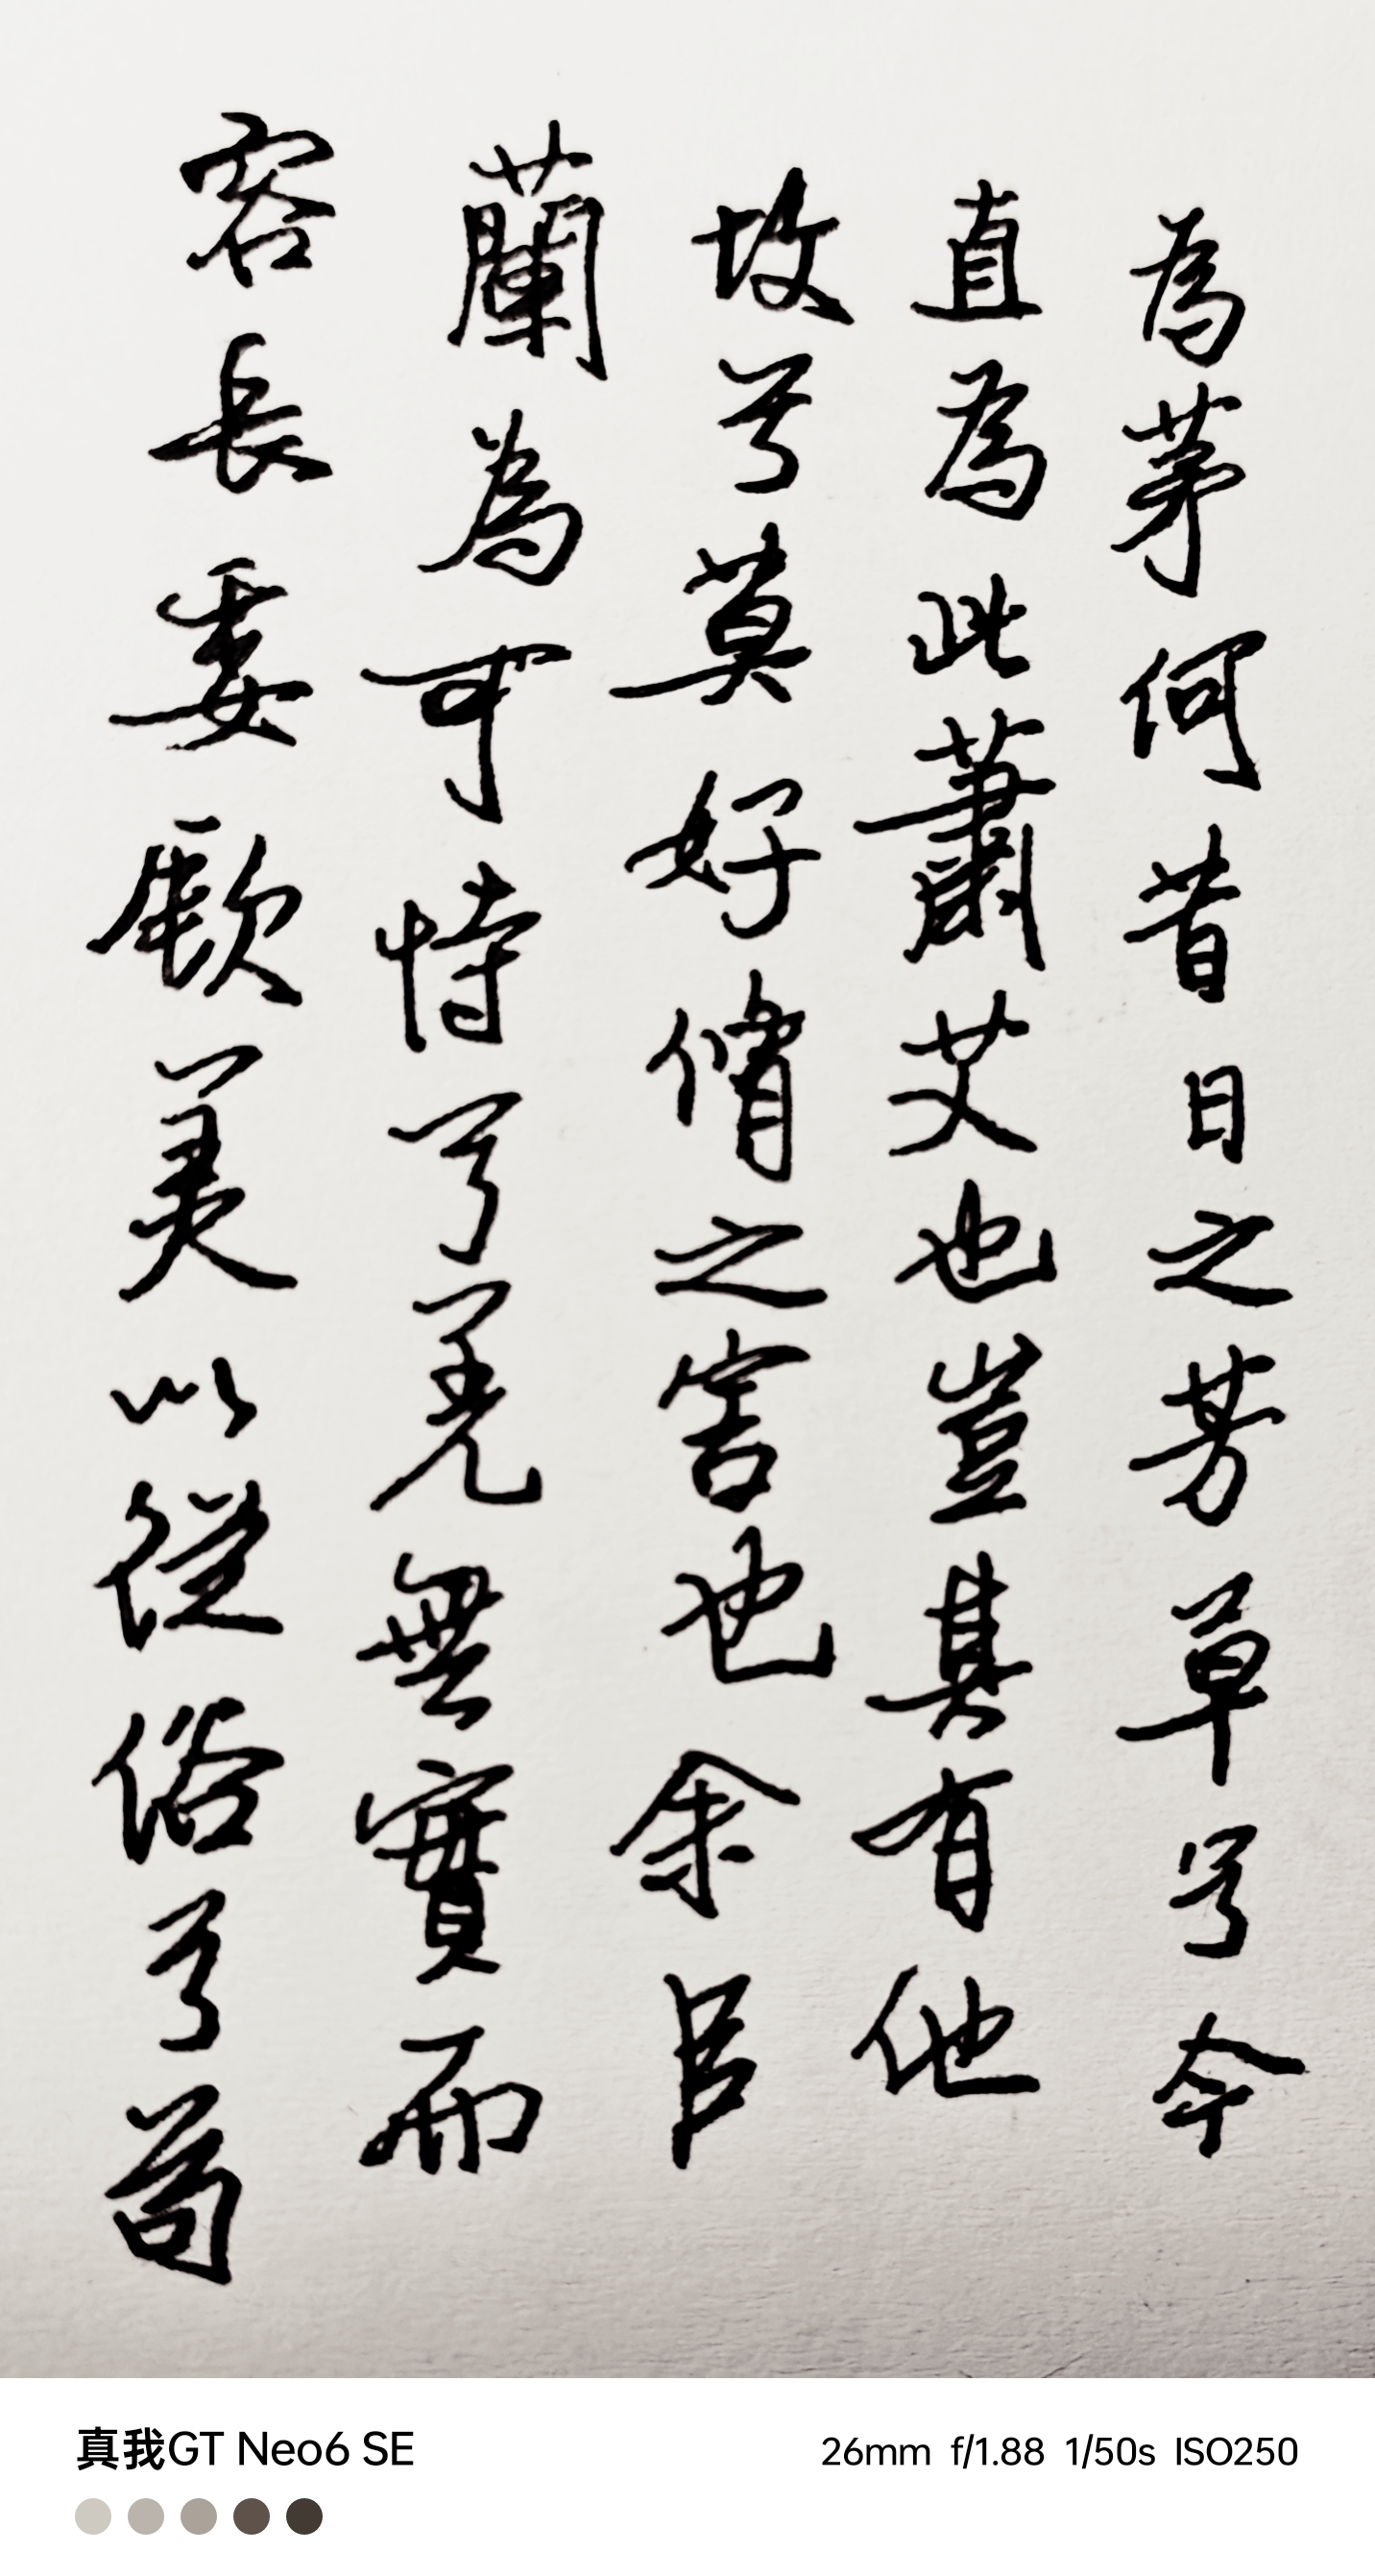 為茅何昔日之芳草兮今
直為此蕭艾也豈其有他
故兮莫好脩之害也余以
蘭為可恃兮羌無實而
容長委厥美以從俗兮苟
真我GT Neo6 SE
26mm f/1.88 1/50s ISO250